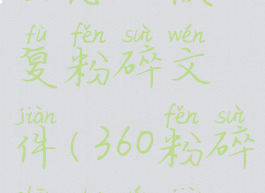 fù fěn suì wén
复粉碎文
jiàn fěn suì
件(360粉碎